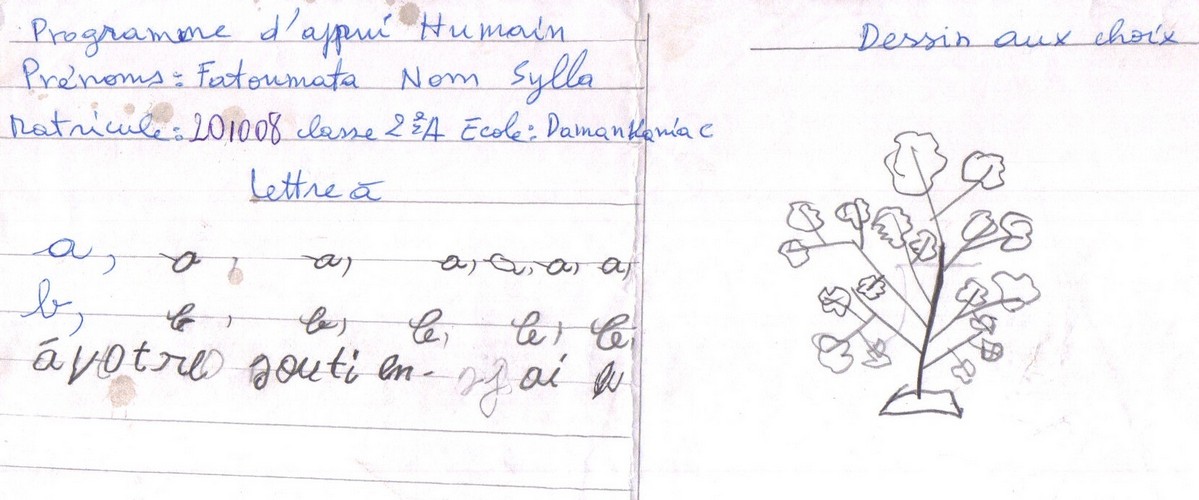 Programme d'appui Humain
Prénoms: Fatoumata Nom Sylla
Matricule: 201008 classe 2 A Ecole: Damankania C
Lettre à
a, a, a, a, a, a, a,
b, b, b, b, b, b,
à votre soutien- ai
Dessin aux choix